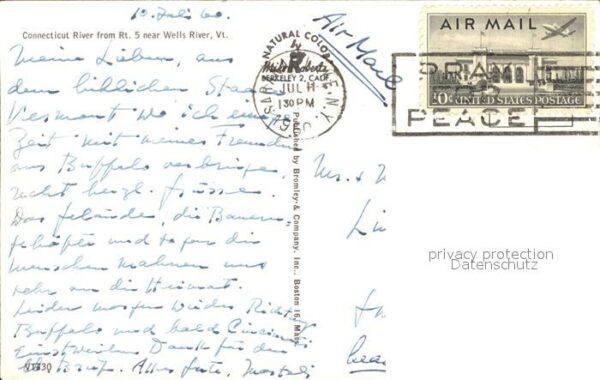 10. Juli 60.
Connecticut River from Rt. 5 near Wells River, Vt.
Meine Lieben, aus
dem lieblichen Staate
Vermont wo ich einige
Zeit mit meinen Freunden
aus Buffalo verbringe,
recht herzl. Grüsse.
Das Gelände, die Bauern-
gehöfte und sogar die
Menschen mahnen uns
sehr an die Heimat.
Leider morgen wieder Richtung
Buffalo und bald Cincinnati
Einstweilen Dank für den
lb. Brief. Alles Gute,
V1730
NATURAL COLOR
by
Mike Roberts
BERKELEY 2, CALIF.
JUL 11
130 PM
N.Y.
Published by Bromley & Company, Inc., Boston 16, Mass.
Air Mail
AIR MAIL
10¢ UNITED STATES POSTAGE
PRAY
FOR
PEACE
Mr. +
privacy protection
Datenschutz